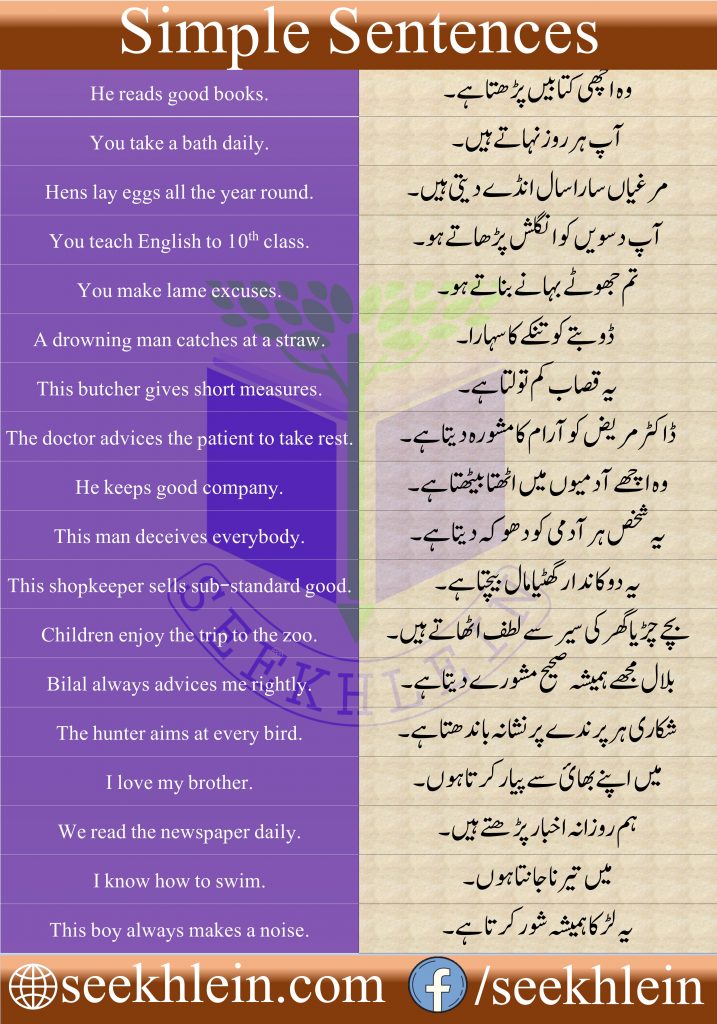 Simple Sentences
He reads good books. وہ اچھی کتابیں پڑھتا ہے۔
You take a bath daily. آپ ہر روز نہاتے ہیں۔
Hens lay eggs all the year round. مرغیاں سارا سال انڈے دیتی ہیں۔
You teach English to 10th class. آپ دسویں کو انگلش پڑھاتے ہو۔
You make lame excuses. تم جھوٹے بہانے بناتے ہو۔
A drowning man catches at a straw. ڈوبتے کو تنکے کا سہارا۔
This butcher gives short measures. یہ قصاب کم تولتا ہے۔
The doctor advices the patient to take rest. ڈاکٹر مریض کو آرام کا مشورہ دیتا ہے۔
He keeps good company. وہ اچھے آدمیوں میں اٹھتا بیٹھتا ہے۔
This man deceives everybody. یہ شخص ہر آدمی کو دھوکہ دیتا ہے۔
This shopkeeper sells sub-standard good. یہ دوکاندار گھٹیا مال بیچتا ہے۔
Children enjoy the trip to the zoo. بچے چڑیا گھر کی سیر سے لطف اٹھاتے ہیں۔
Bilal always advices me rightly. بلال مجھے ہمیشہ صحیح مشورے دیتا ہے۔
The hunter aims at every bird. شکاری ہر پرندے پر نشانہ باندھتا ہے۔
I love my brother. میں اپنے بھائ سے پیار کرتا ہوں۔
We read the newspaper daily. ہم روزانہ اخبار پڑھتے ہیں۔
I know how to swim. میں تیرنا جانتا ہوں۔
This boy always makes a noise. یہ لڑکا ہمیشہ شور کرتا ہے۔
SEEKHLEIN
seekhlein.com f/seekhlein